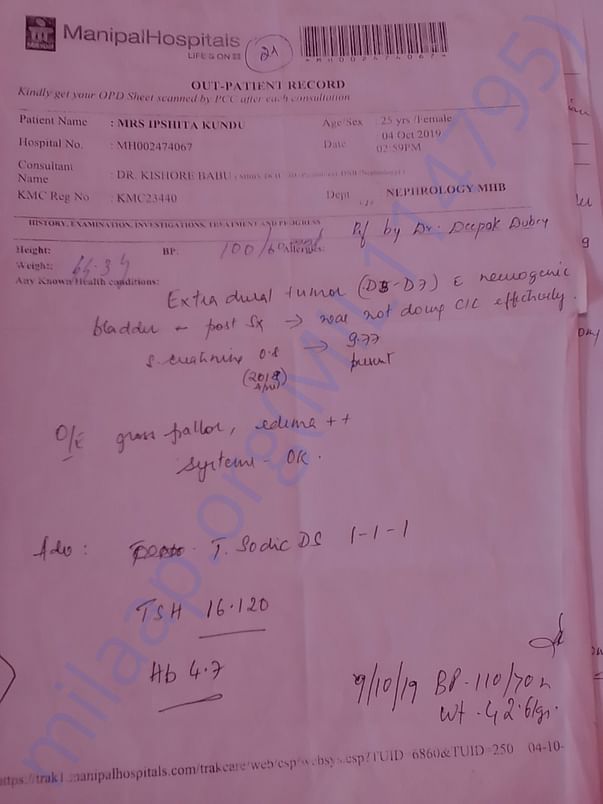 ManipalHospitals
LIFE'S ON
21
MH002474067
OUT-PATIENT RECORD
Kindly get your OPD Sheet scanned by PCC after each consultation
Patient Name : MRS IPSHITA KUNDU Age/Sex : 25 yrs /Female
Hospital No. : MH002474067 Date 04 Oct 2019
02:59PM
Consultant
Name : DR. KISHORE BABU
KMC Reg No : KMC23440 Dept NEPHROLOGY MHB
HISTORY, EXAMINATION, INVESTIGATIONS, TREATMENT AND PROGRESS
Rf by Dr. Deepak Dubey
Height: BP: 100/60 Allergies:
Weight:
Any Known Health conditions:
Extra dural tumor (D5-D7) c neurogenic
bladder post Sx → was not doing CIC effectively.
s. creatinine 0.8 → 9.77
(2018) present
O/E gross pallor, edema ++
Systems - OK.
Adv: T. Sodic DS 1-1-1
TSH 16.120
Hb 4.7
9/10/19 BP - 110/70
Wt - 42.6kgs.
https://trak1.manipalhospitals.com/trakcare/web/csp/websys.csp?TUID=6860&TUID=250 04-10-
milaap.org(MIL114795)